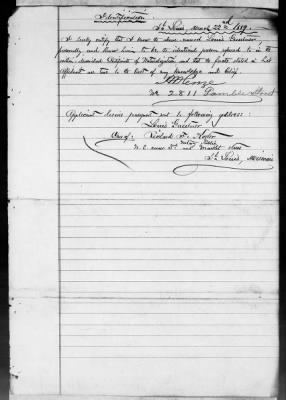 Identification
St. Louis March 22nd 1889.
I hereby certify that I know the above named Louis Gardener
personally and know him to be the identical person referred to in the
within described Certificate of Naturalization and that the facts stated in
Affidavit are true to the best of my knowledge and belief.
No 2811 Street
Applicant desires passport sent to following address:
Louis Gardener
Care of: Richard F.
Notary Public
N.E. corner and Market street
St. Louis, Missouri